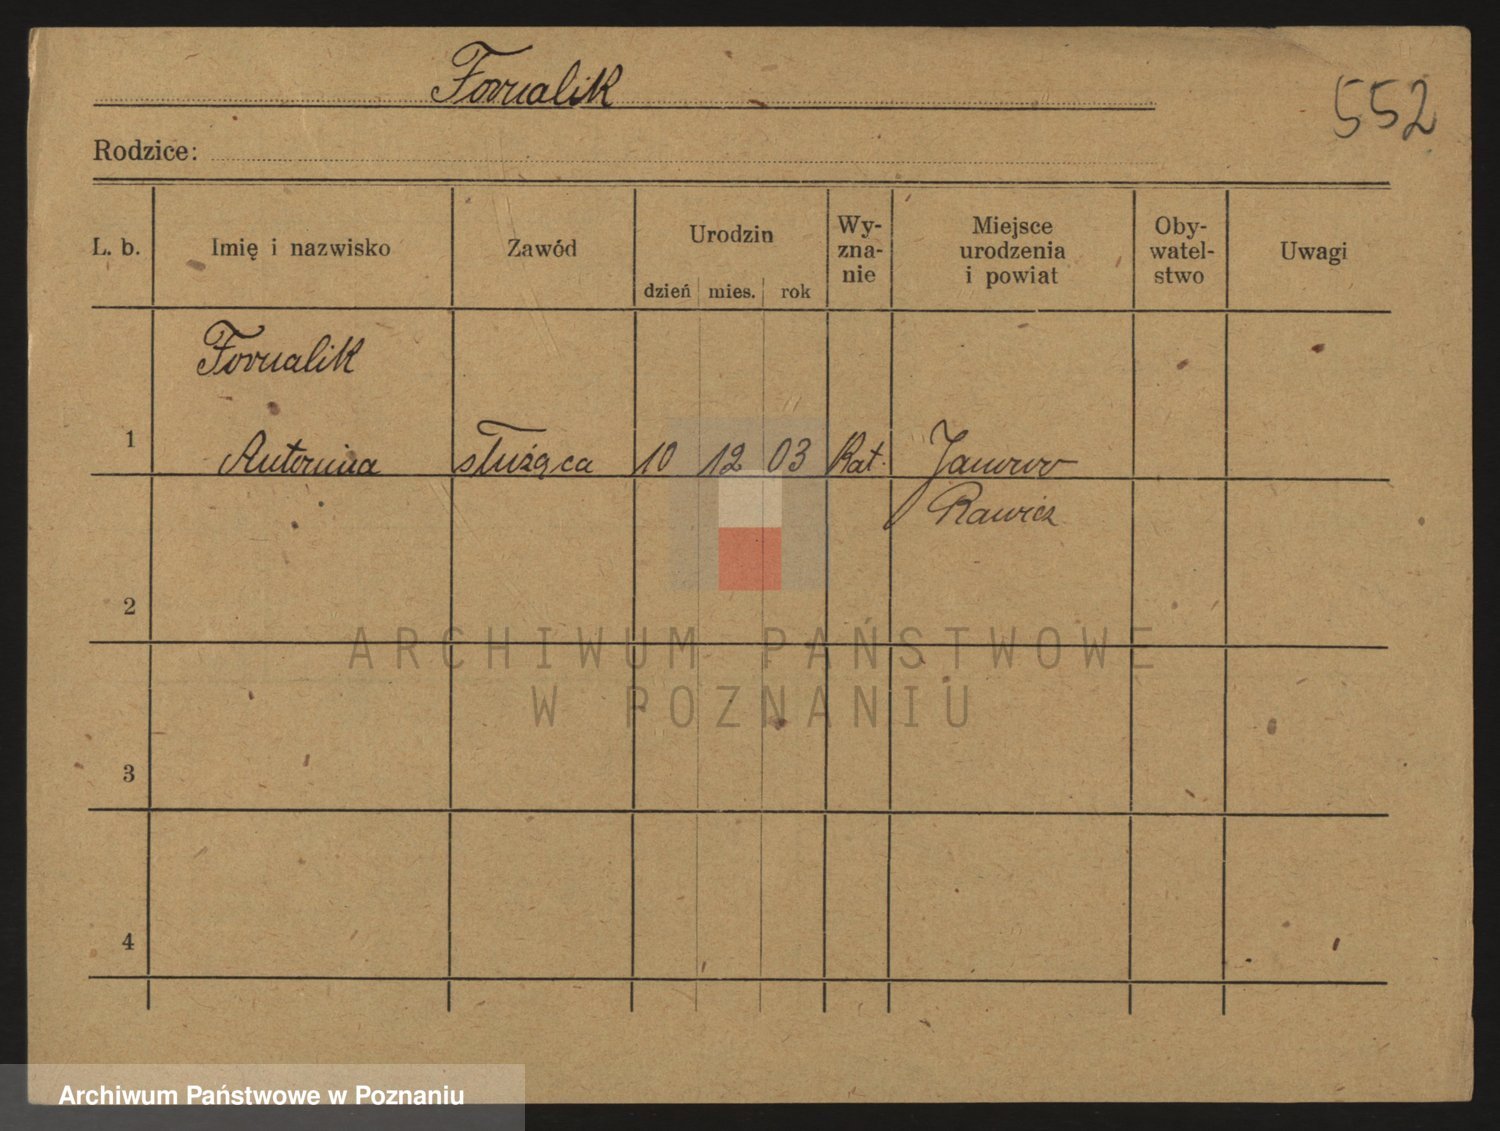 Fornalik
552
Rodzice:
L. b. Imię i nazwisko Zawód Urodzin dzień mies. rok Wy-zna-nie Miejsce urodzenia i powiat Oby-watel-stwo Uwagi
Fornalik
1 Antonina służąca 10 12 03 Kat. Janowo
Rawicz
2
3
4
ARCHIWUM PAŃSTWOWE
W POZNANIU
Archiwum Państwowe w Poznaniu